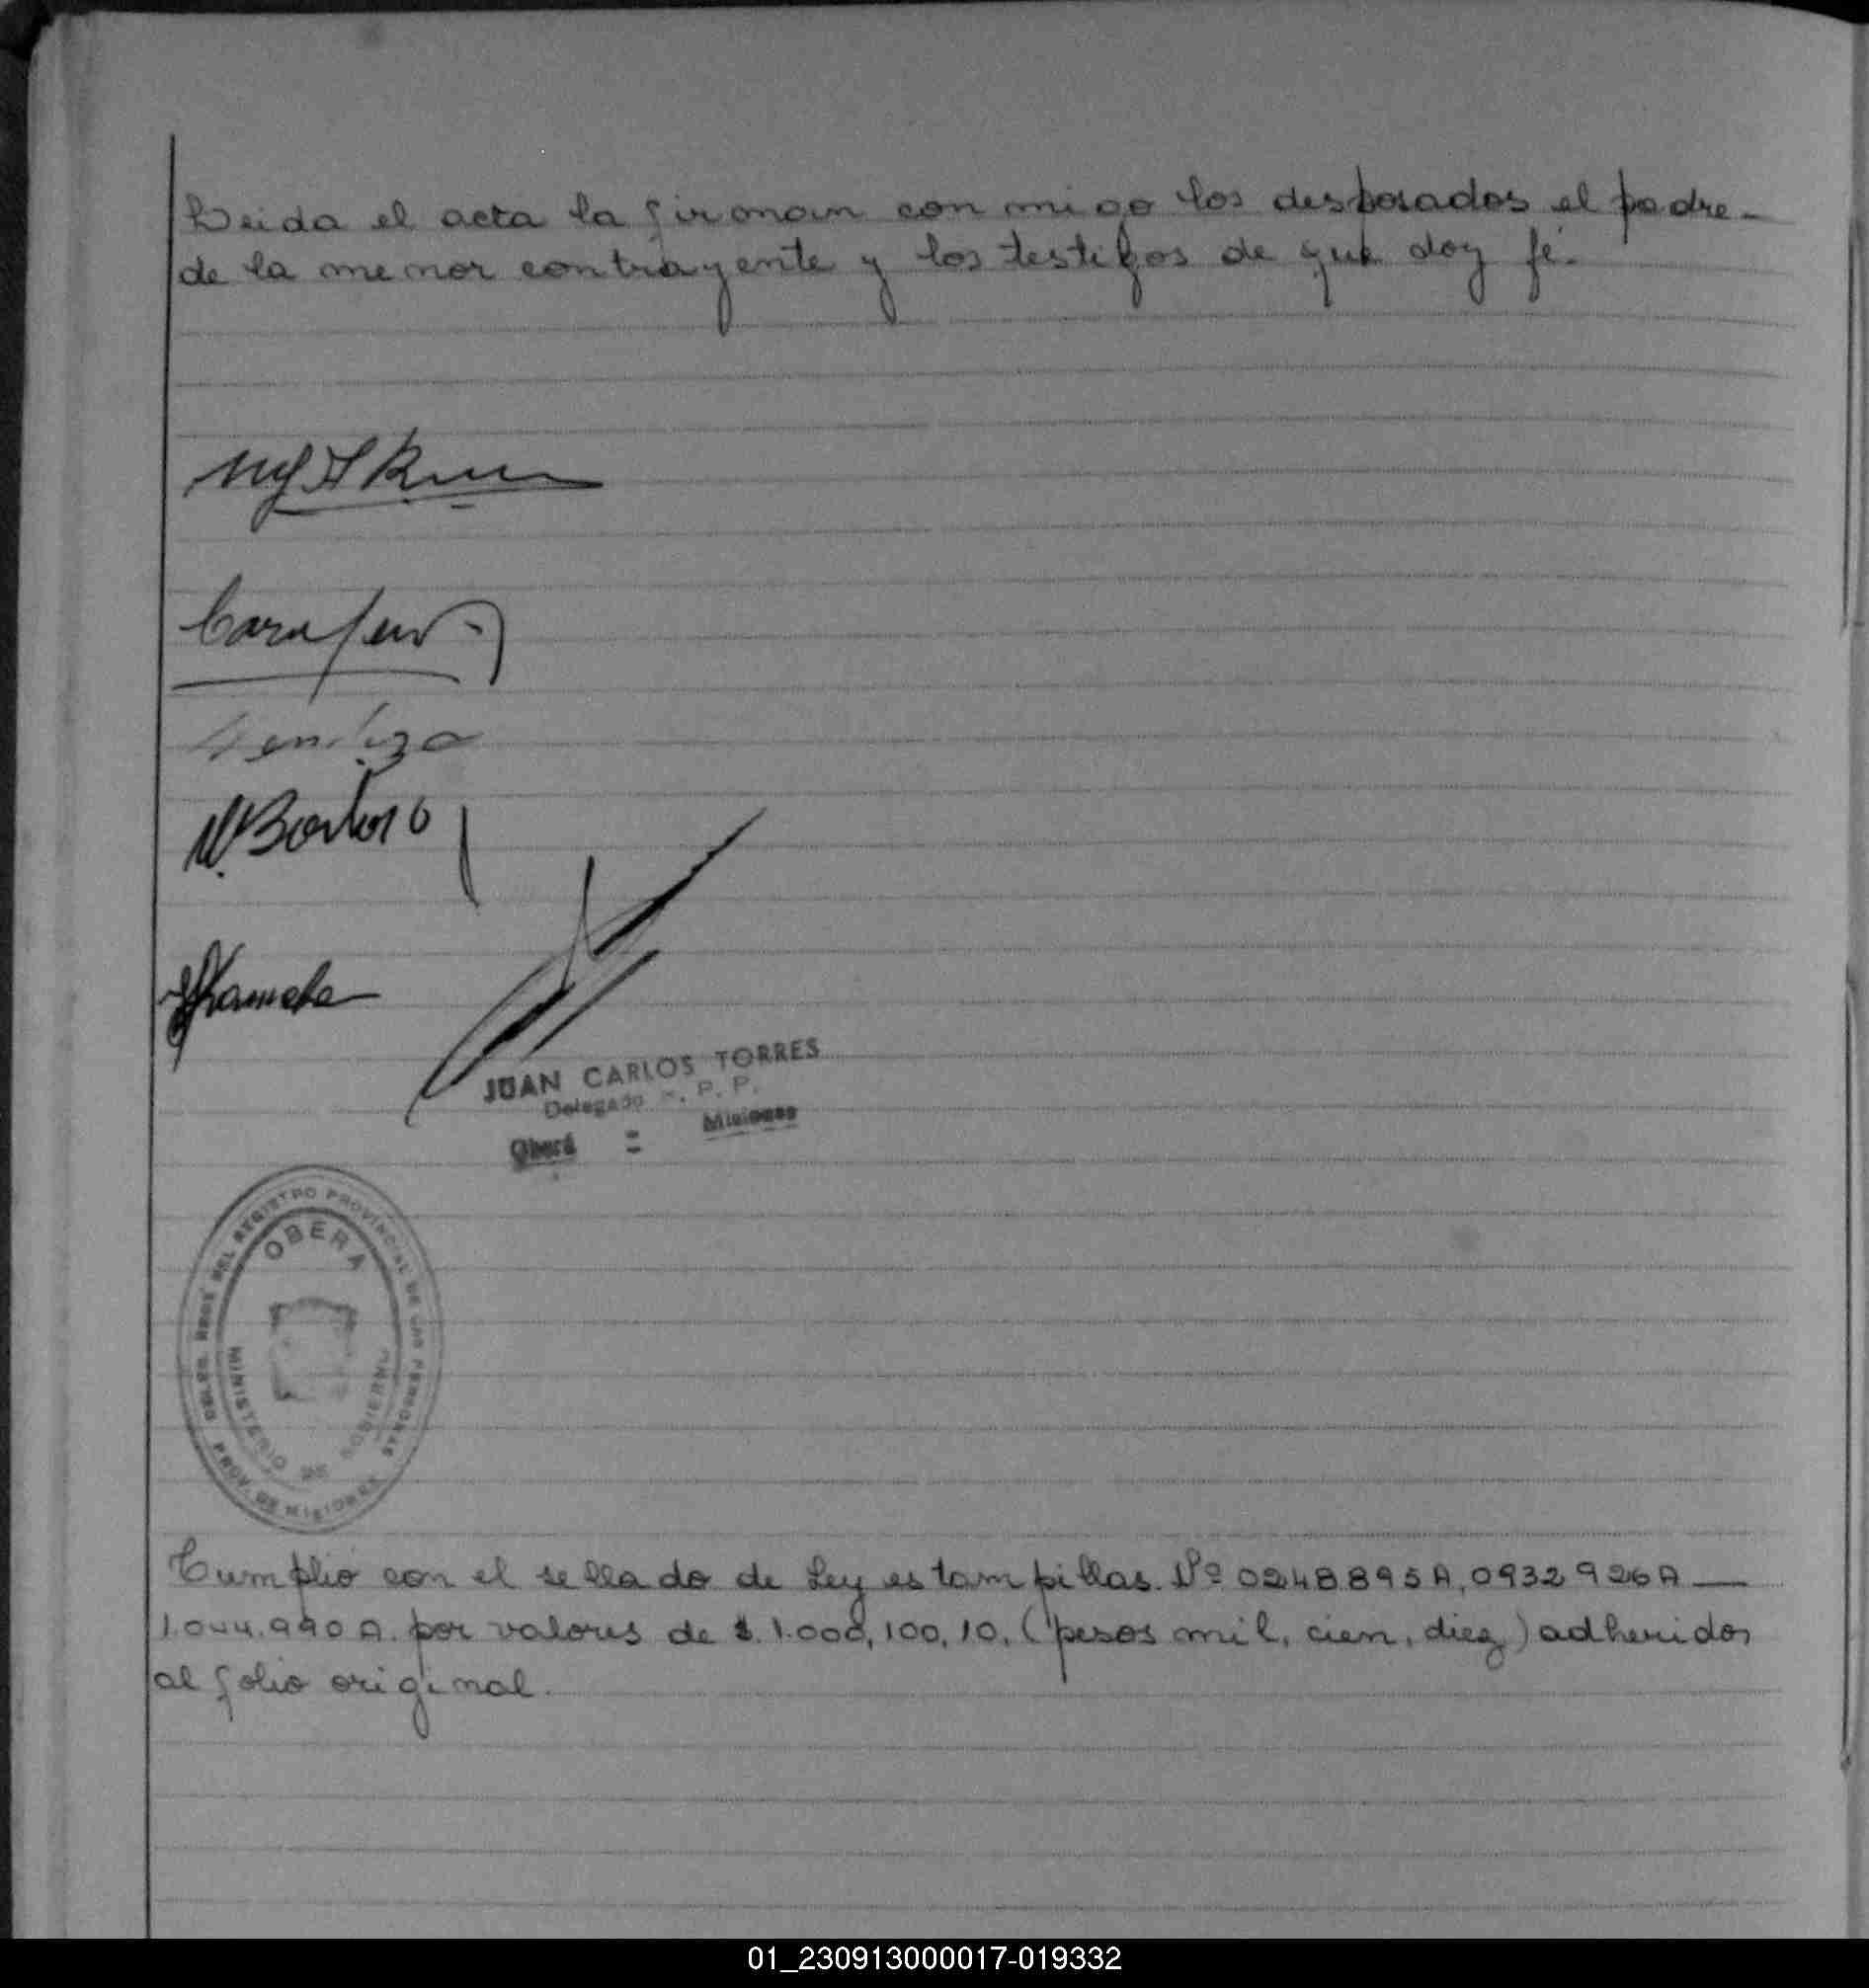 Leida el acta la firman con migo los desposados el padre-
de la menor contrayente y los testigos de que doy fé.
JUAN CARLOS TORRES
Delegado R. P. P.
Oberá = Misiones
DELEG. REGS. DEL REGISTRO PROVINCIAL DE LAS PERSONAS
OBERA
MINISTERIO DE GOBIERNO
PROV. DE MISIONES
Cumplió con el sellado de Ley estampillas. Nº 0248.895A, 0932926A —
1.044.990A. por valores de $. 1.000, 100, 10, (pesos mil, cien, diez) adheridos
al folio original.
01_230913000017-019332